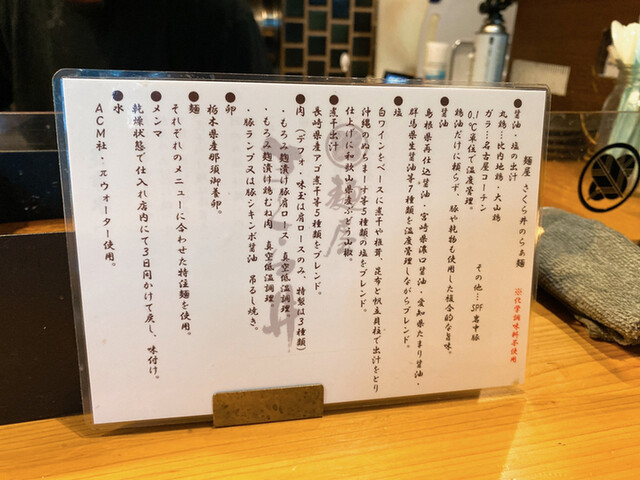 麺屋 さくら井のらぁ麺
※化学調味料不使用
●醤油・塩の出汁
丸鶏…比内地鶏・大山鶏
ガラ…名古屋コーチン
その他…SPF岩中豚
0.1℃単位で温度管理。
鶏油だけに頼らず、豚や乾物も使用した複合的な旨味。
●醤油
島根県再仕込醤油・宮崎県濃口醤油・愛知県たまり醤油・
群馬県生醤油等7種類を温度管理しながらブレンド。
●塩
白ワインをベースに煮干や椎茸、昆布と帆立貝柱で出汁をとり
沖縄のぬちまーす等5種類の塩をブレンド。
仕上げに和歌山県産ぶどう山椒。
●煮干出汁
長崎県産アゴ煮干等5種類をブレンド。
●肉(デフォ・味玉は肩ロースのみ、特製は3種類)
・もろみ麹漬け豚肩ロース 真空低温調理。
・もろみ麹漬け鶏むね肉 真空低温調理。
・豚ランプ又は豚シキンボ醤油 吊るし焼き。
●卵
栃木県産那須御養卵。
●麺
それぞれのメニューに合わせた特注麺を使用。
●メンマ
乾燥状態で仕入れ店内にて3日間かけて戻し、味付け。
●水
ACM社・πウォーター使用。